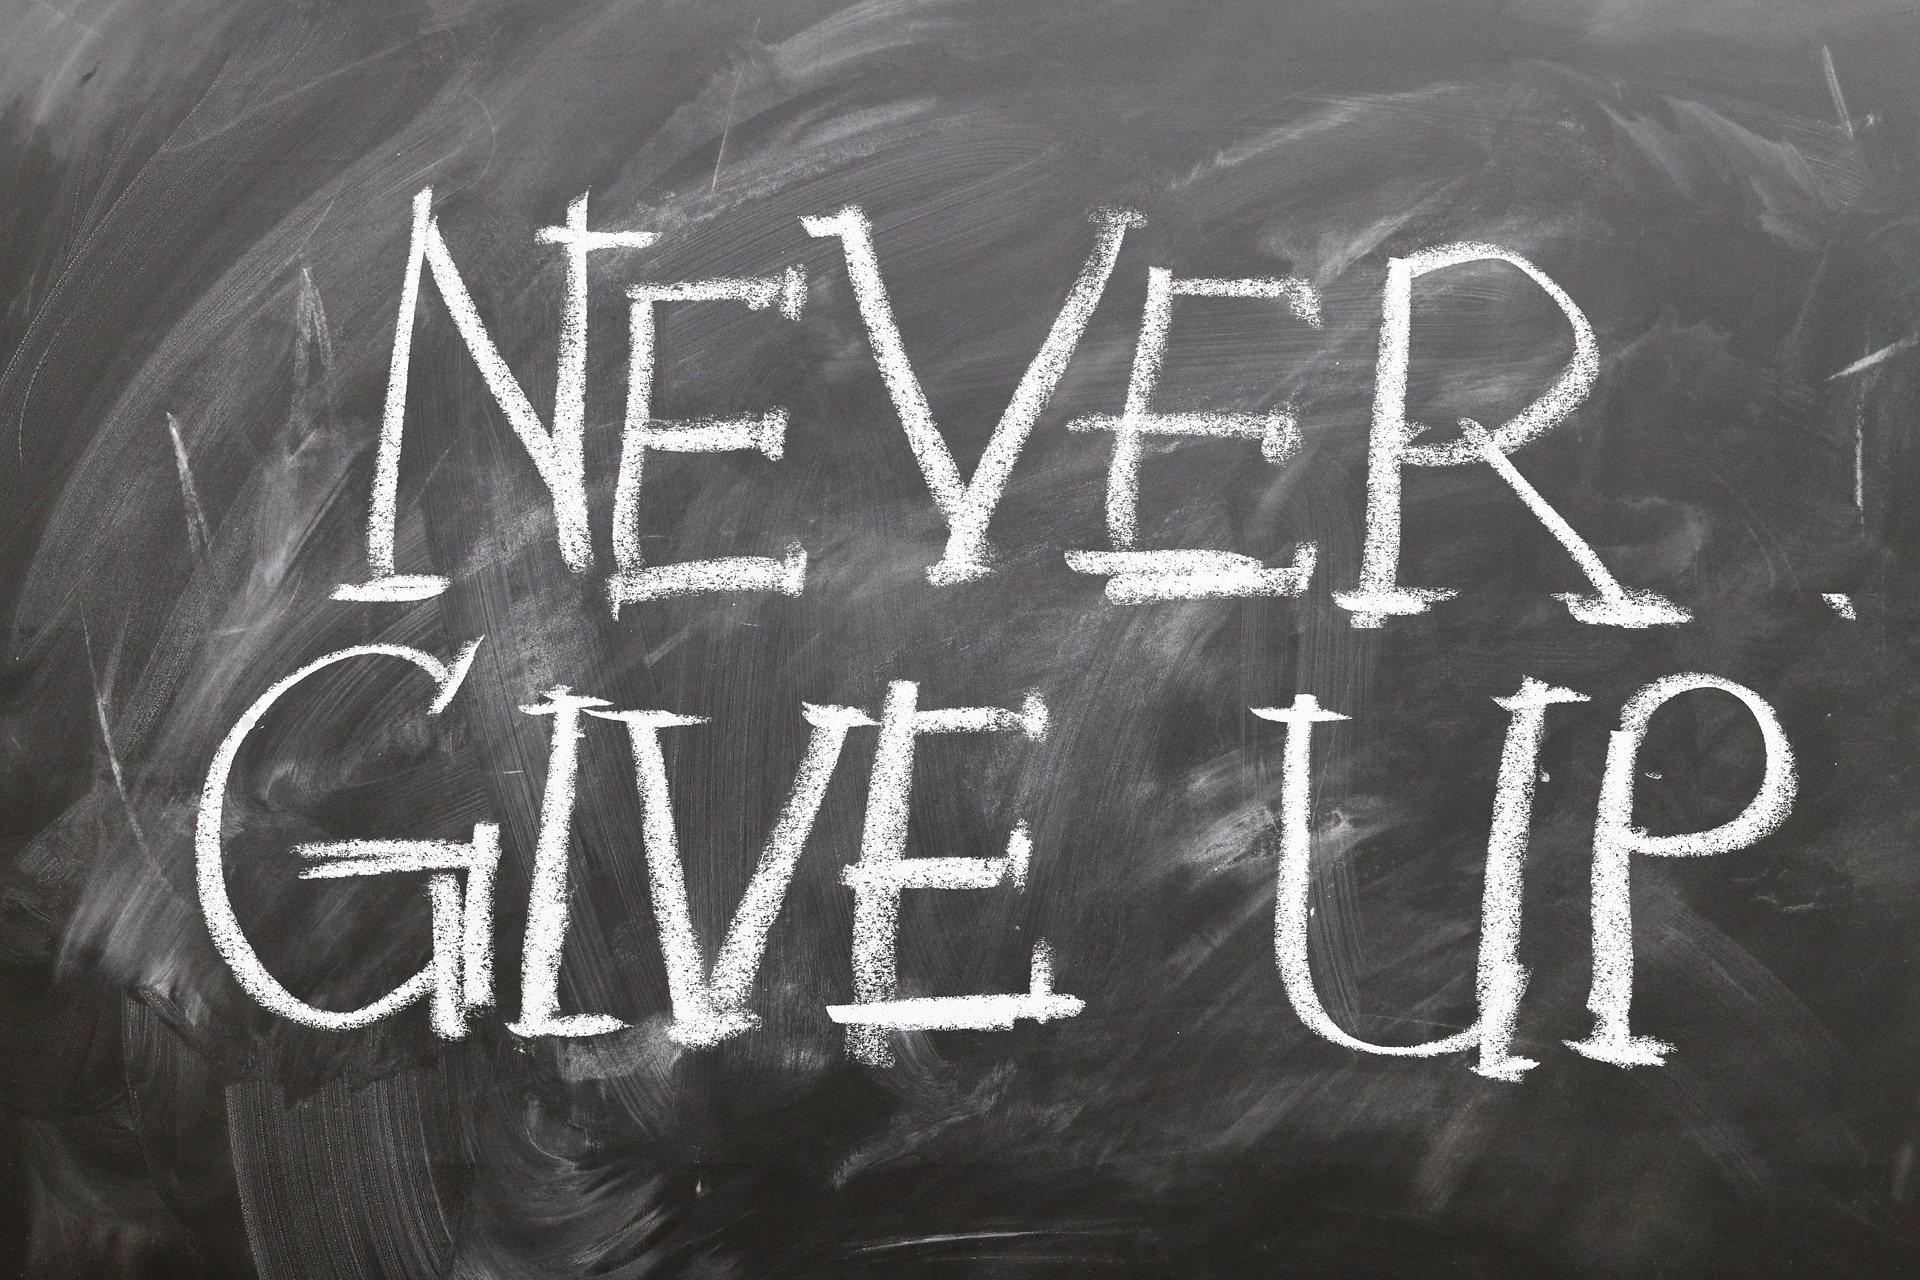 NEVER
GIVE UP